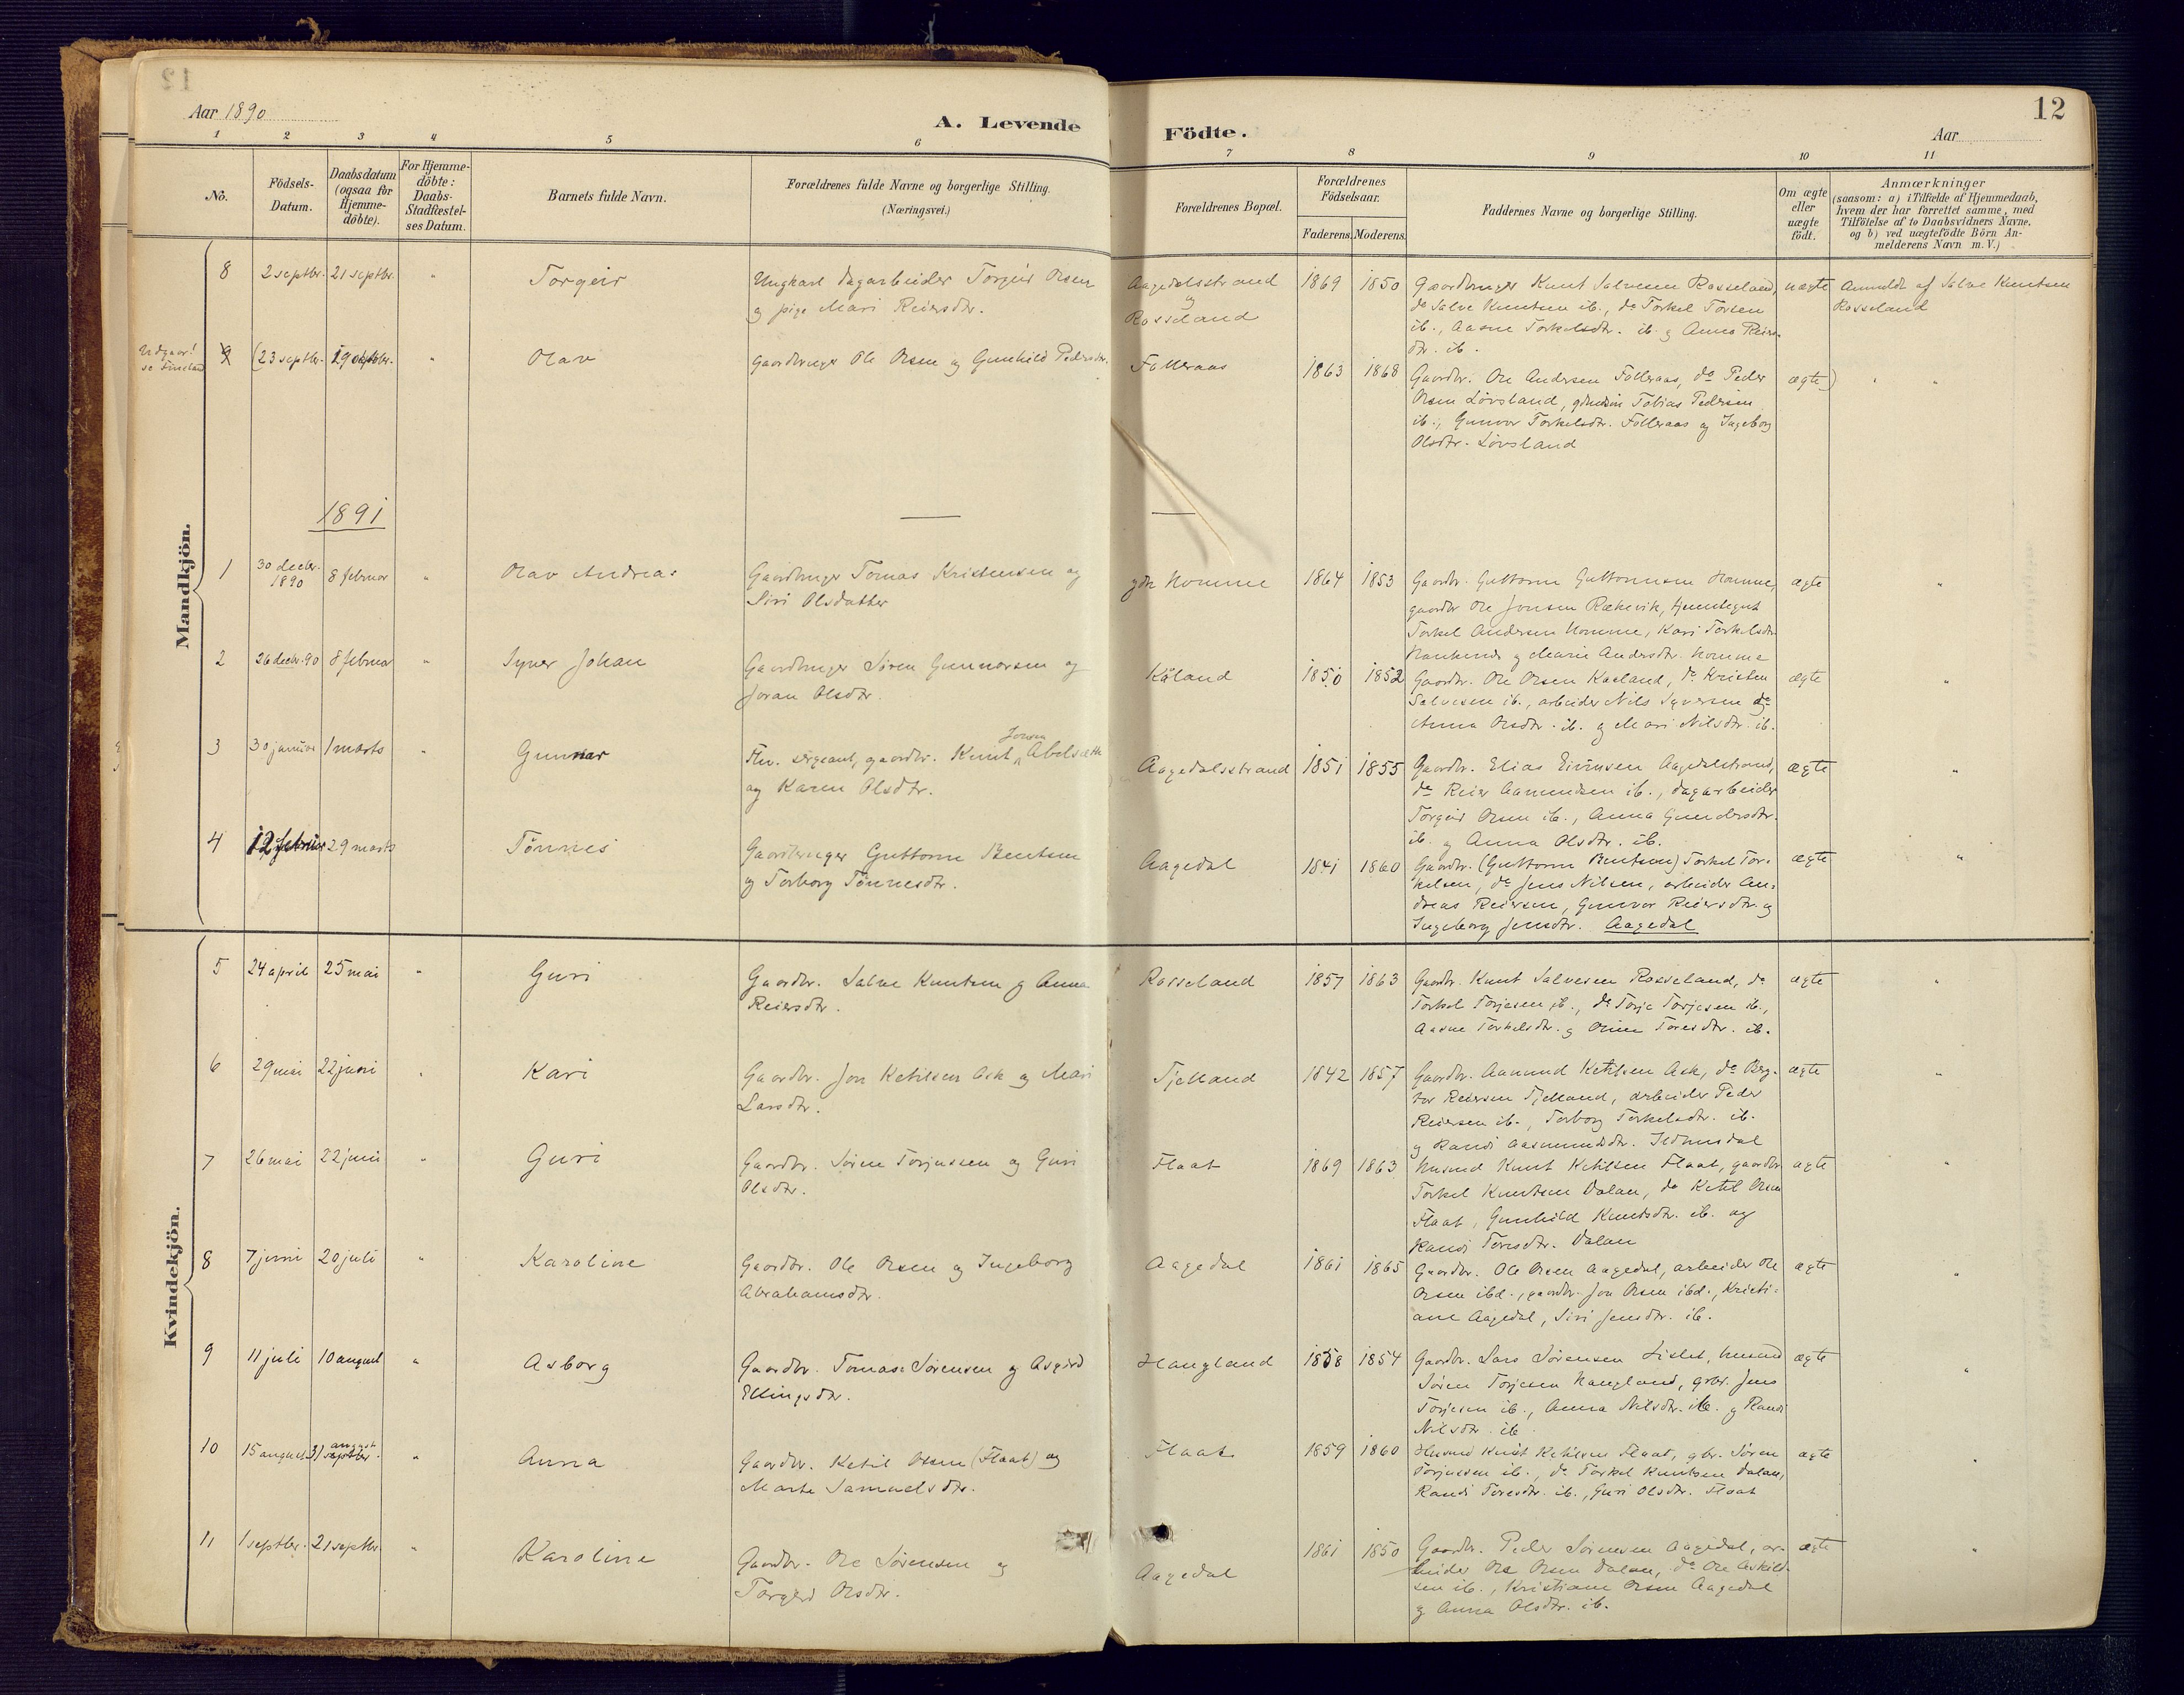 12
Aar 1890
A. Levende Födte.
Aar
12
1 2 3 4 5 6 7 8 9 10 11
No.
Födsels-Datum.
Daabsdatum (ogsaa for Hjemme-döbte).
For Hjemme-döbte: Daabs-Stadfæstel-ses Datum.
Barnets fulde Navn.
Forældrenes fulde Navne og borgerlige Stilling.
(Næringsvei.)
Forældrenes Bopæl.
Forældrenes Födselsaar.
Faderens. Moderens.
Faddernes Navne og borgerlige Stilling.
Om ægte eller uægte födt.
Anmærkninger
(saasom: a) i Tilfælde af Hjemmedaab,
hvem der har forrettet samme, med
Tilföielse af to Daabsvidners Navne,
og b) ved uægtefödte Börn An-
melderens Navn m. V.)
Mandkjön.
8 2 septbr. 21 septbr. " Torgeir
Ungkarl dagarbeider Torgeir Olsen
og pige Mari Reiersdtr.
Aagedalsstrand
og
Rosseland
1869 1850
Gaardbruger Knut Salvesen Rosseland,
do Salve Knutsen ib., do Torkel Torsen
ib., Aasne Torkelsdtr. ib. og Anna Reiers-
dtr. ib.
uægte
Anmeldt af Salve Knutsen
Rosseland
Udgaar!
se Finsland
9 (23 septbr. 19 oktober. " Olav
Gaardbruger Ole Olsen og Gunhild Pedersdtr.
Folleraas
1863 1868
Gaardbr. Ole Andersen Folleraas, do Peder
Olsen Lövsland, Tobias Pedersen
ib., Gunvor Torkelsdtr. Folleraas og Ingeborg
Olsdtr. Lövsland
ægte) " "
1891
1 30 decbr. 1890 8 februar " Olav Andreas
Gaardbruger Tomas Kristensen og
Siri Olsdatter
ydre Homme
1864 1853
Gaardbr. Guttorm Guttormsen Homme,
gaardbr Ole Jonsen Rækevik, tjenstegut
Torkel Andersen Homme, Kari Torkelsdtr
og Marie Andersdtr. Homme
ægte "
2 26 decbr. 90 8 februar " Syver Johan
Gaardbruger Sören Gunnarsen og
Joran Olsdtr.
Kåland
1850 1852
Gaardbr. Ole Olsen Kaaland, do Kristen
Salvesen ib., arbeider Nils Syversen do
Anna Olsdtr. ib. og Mari Nilsdtr. ib.
ægte "
3 30 januar 1 marts " Gunnar
Fhv. sergeant, gaardbr. Knut Jonsen Abelsæth
og Karen Olsdtr.
Aagedalsstrand
1851 1855
Gaardbr. Elias Aagedalstrand,
do Reier Aanundsen ib., dagarbeider
Torgeir Olsen ib., Anna Gundersdtr.
ib. og Anna Olsdtr. ib.
ægte "
4 12 februar 29 marts Tönnes
Gaardbruger Guttorm Bentsen
og Torborg Tönnesdtr.
Aagedal
1841 1860
Gaardbr. (Guttorm Bentsen) Torkel Tor-
kelsen, do Jens Nilsen, arbeider An-
dreas Reiersen, Gunvor Reiersdtr. og
Ingeborg Jensdtr. Aagedal
ægte "
Kvindekjön.
5 24 april 25 mai " Guri
Gaardbr. Salve Knutsen og Anna
Reiersdtr.
Rosseland
1857 1863
Gaardbr. Knut Salvesen Rosseland, do
Torkel Torjesen ib., do Torje Torjesen ib.,
Aasne Torkelsdtr. og Toresdtr. ib.
ægte "
6 29 mai 22 juni " Kari
Gaardbr. Jon Ketilsen Ask og Mari
Larsdtr.
Tjelland
1842 1857
Gaardbr. Aanund Ketilsen Ask, do Berg-
tor Reiersen Tjelland, arbeider Peder
Reiersen ib., Torborg Torkelsdtr. ib.
og Randi Aasmundsdtr.
ægte "
7 26 mai 22 juni " Guri
Gaardbr. Sören Torjussen og Guri
Olsdtr.
Flaat
1869 1863
Husmd Knut Ketilsen Flaat, gaardbr
Torkel Knutsen Dalan, do Ketil Olsen
Flaat, Gunhild Knutsdtr. ib. og
Randi Toresdtr. Dalan
ægte "
8 7 juni 20 juli " Karoline
Gaardbr. Ole Olsen og Ingeborg
Abrahamsdtr.
Aagedal
1861 1865
Gaardbr. Ole Olsen Aagedal, arbeider Ole
Olsen ibd., gaardbr. Jon Olsen ibd., Kristi-
ane Aagedal, Siri Jensdtr. ib.
ægte "
9 11 juli 10 august " Asborg
Gaardbr. Tomas Sörensen og Asgierd
Ellingsdtr.
Haugland
1858 1854
Gaardbr. Lars Sörensen Lislet, husmd
Sören Torjesen Haugland, grbr. Jens
Torjesen ib., Anna Nilsdtr. ib. og Randi
Nilsdtr. ib.
ægte "
10 15 august 31 august septbr. " Anna
Gaardbr. Ketil Olsen (Flaat) og
Marte Samuelsdtr.
Flaat
1859 1860
Husmd Knut Ketilsen Flaat, gbr. Sören
Torjussen ib., do Torkel Knutsen Dalan,
Randi Toresdtr. ib., Guri Olsdtr. Flaat
ægte "
11 1 septbr. 21 septbr. " Karoline
Gaardbr. Ole Sörensen og
Torgerd Olsdtr.
Aagedal
1861 1850
Gaardbr. Peder Sörensen Aagedal, ar-
beider Ole Olsen Dalan, do Ole Askild-
sen ib., Kristiane Olsen Aagedal
og Anna Olsdtr. ib.
ægte "